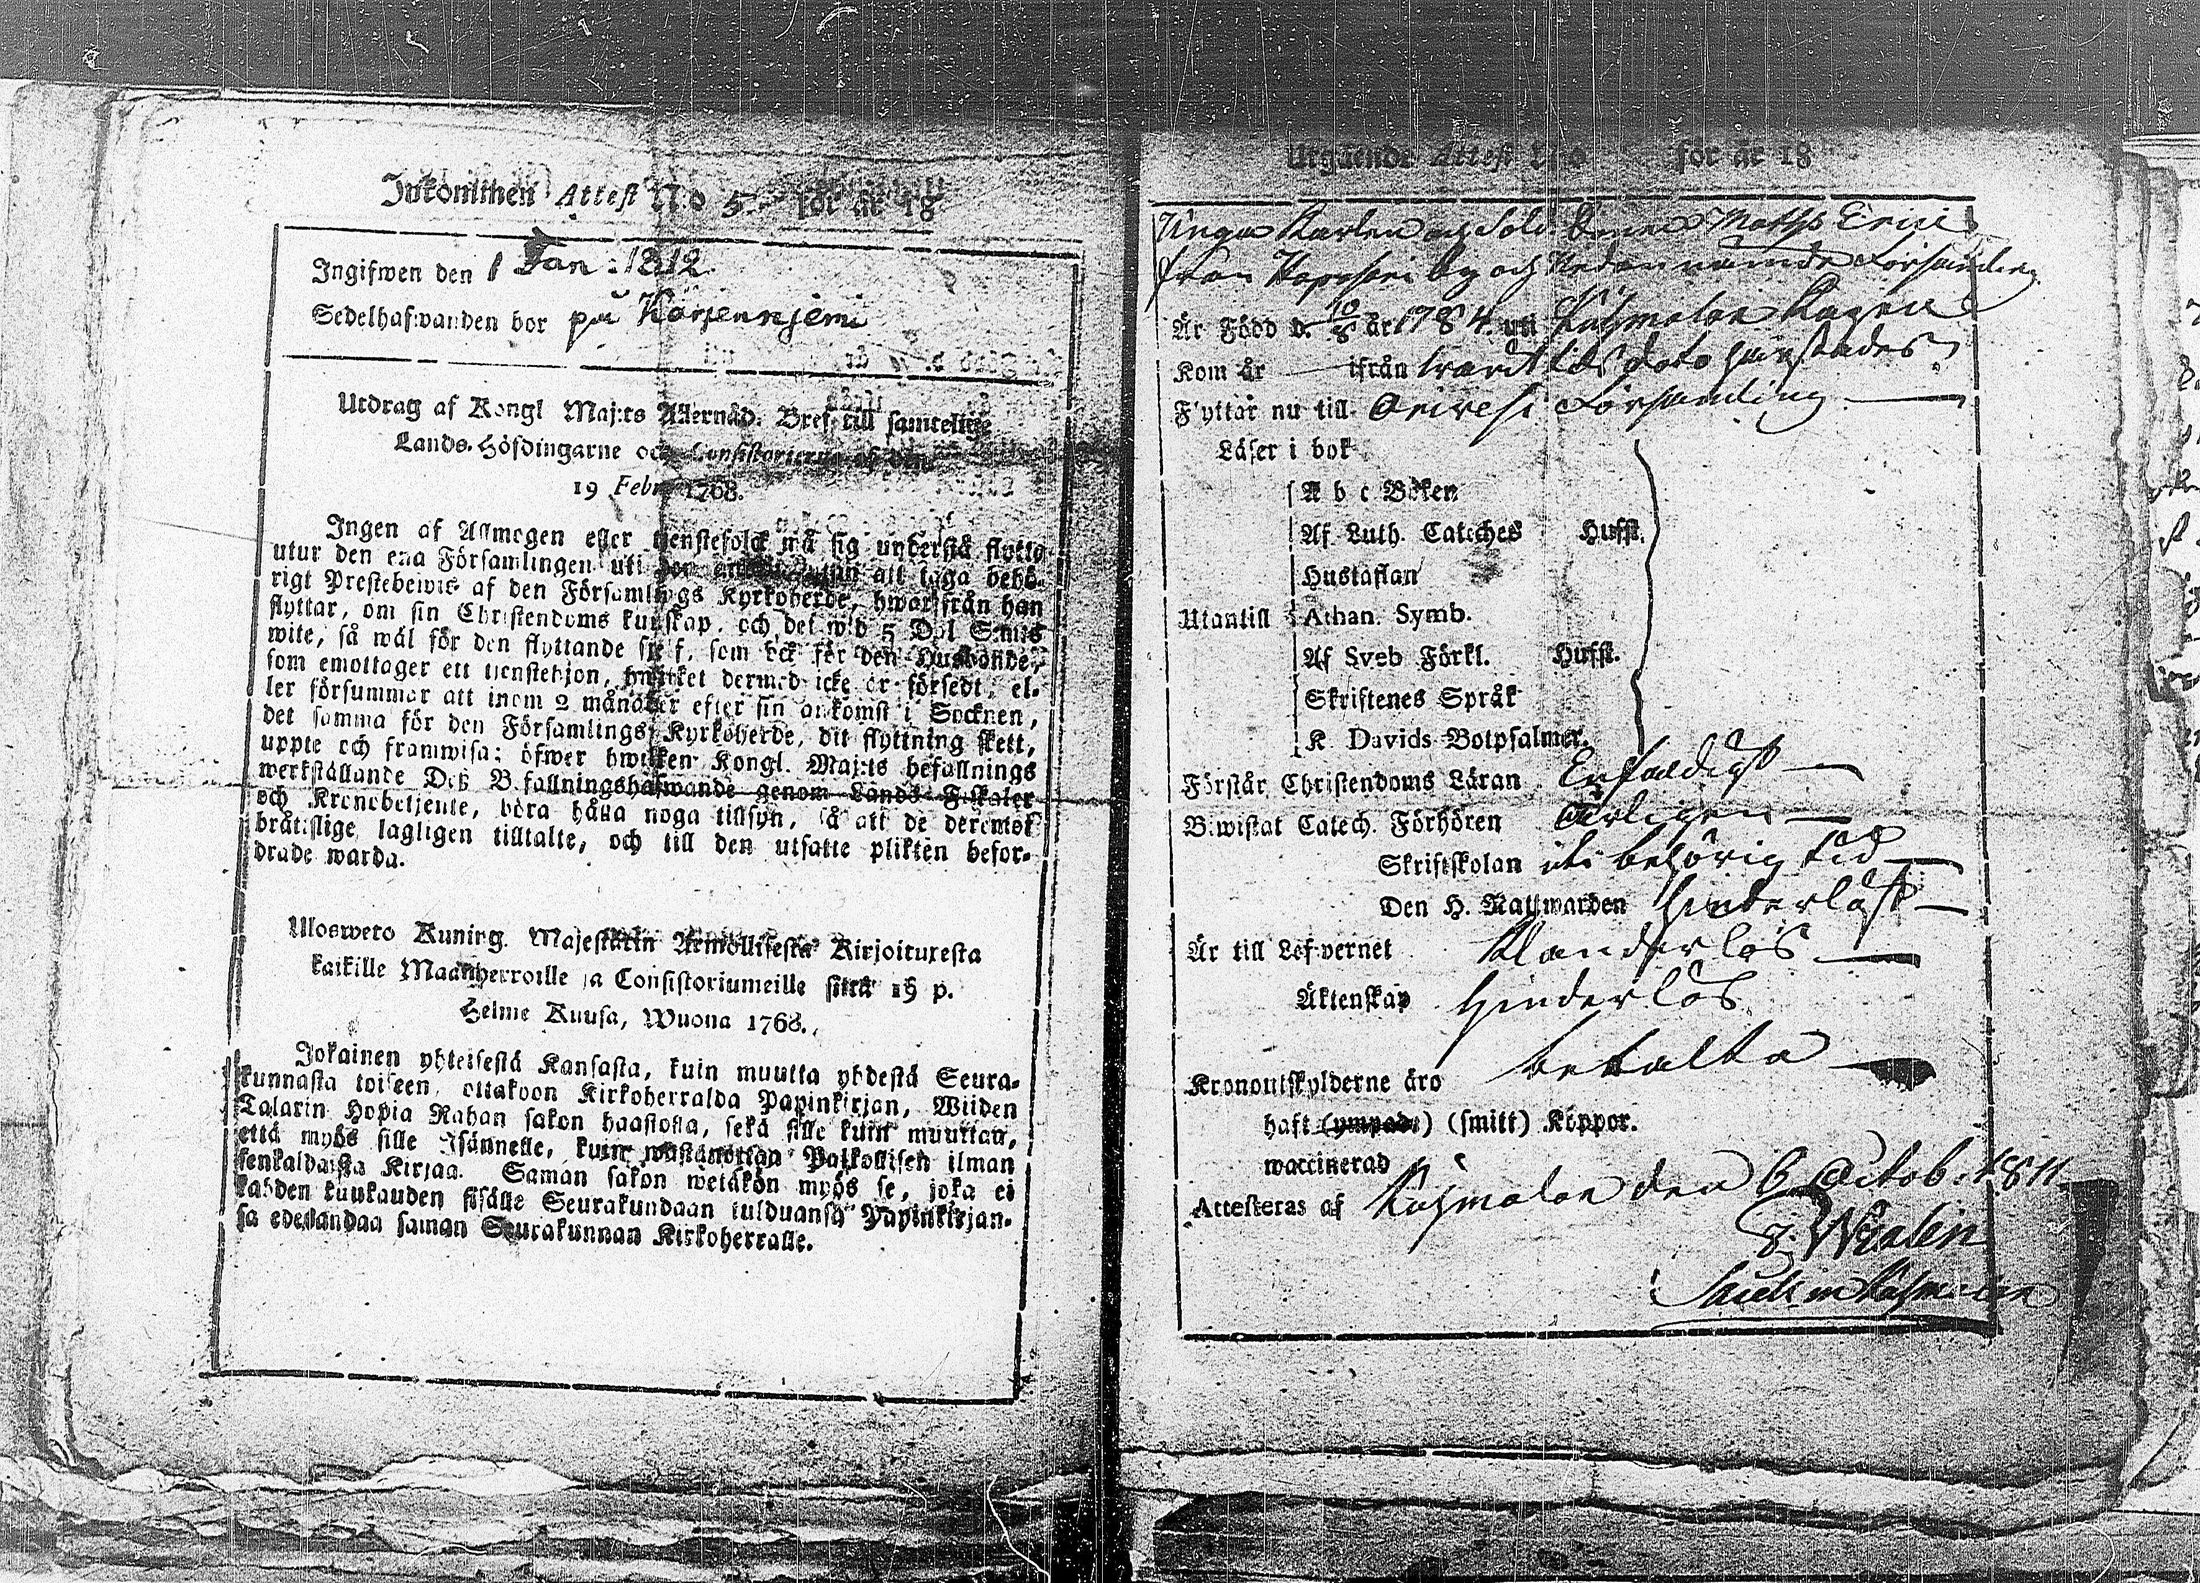 Inkommen Attest No 5 för år 18
Ingifwen den 1 Jan: 1812
Sedelhafwanden bor på Korjenniemi
Utdrag af Kongl Maj:ts Allernåd. Bref till samtelige
Lands-Höfdingarne och Consistorierne af den
19 Febr. 1768.
Ingen af Allmogen eller tjenstefolck må sig understå flytta
utur den ena Församlingen uti den andra utan att taga behö-
rigt Prestebewis af den Församlings Kyrkoherde, hwarifrån han
flyttar, om sin Christendoms kunskap, och det wid 5 Dal. S:mts
wite, så wäl för den flyttande sjelf, som ock för den Husbonde,
som emottager ett tjenstehjon, hwilket dermed icke är försedt, el-
ler försummar att inom 2 månader efter sin ankomst i Socknen,
det samma för den Församlings Kyrkoherde, dit flyttning skett,
uppte och framwisa; öfwer hwilken Kongl. Maj:ts befallnings
werkställande Deß Befallningshafwande genom Lands-Fiskaler
och Kronobetjente, böra hålla noga tillsyn, så att de deremot
bråtslige lagligen tilltalte, och till den utsatte plikten befor-
drade warda.
Ulosweto Kuning. Majestätin Armollisesta Kirjoituxesta
kaikille Maanherroille ja Consistoriumeille siitä 19 p.
Helme Kuusa, Wuona 1768.
Jokainen yhteisestä Kansasta, kuin muutta yhdestä Seura-
kunnasta toiseen, ottakoon Kirkoherralda Papinkirjan, Wiiden
Talarin Hopia Rahan sakon haastolla, sekä sille kuin muuttan,
että myös sille Isännelle, kuin wastanottaa Palkollisen ilman
senkaldaista Kirjaa. Saman sakon wetäkön myös se, joka ei
kahden kuukauden sisälle Seurakundaan tulduansa Papinkirjan-
sa edesandaa saman Seurakunnan Kirkoherralle.
Utgående Attest No för år 18
Unga Karlen Matts Eric
från by och Nedannämde Församling
Är Född d. 10/8 år 1784. uti Kuhmalax
Kom år — ifrån wardt härstädes
Flyttar nu till Orivesi Församling —
Läser i bok
A b c Boken
Af Luth. Cateches Hufst.
Hustaflan
Utantill Athan. Symb.
Af Sveb Förkl. Hufst.
Skriftenes Språk
K. Davids Botpsalmer.
Förstår Christendoms Läran Enfaldigt —
Bewistat Catech. Förhören Årligen —
Skriftskolan uti behörig tid —
Den H. Nattwarden hinderlöst —
Är till Lefvernet Klanderlös —
Äktenskap hinderlös
Kronoutskylderne äro betalta —
haft (ympade) (smitt) Koppor.
waccinerad
Attesteras af Kuhmalax den 6 Octob: 1811.
Wialen